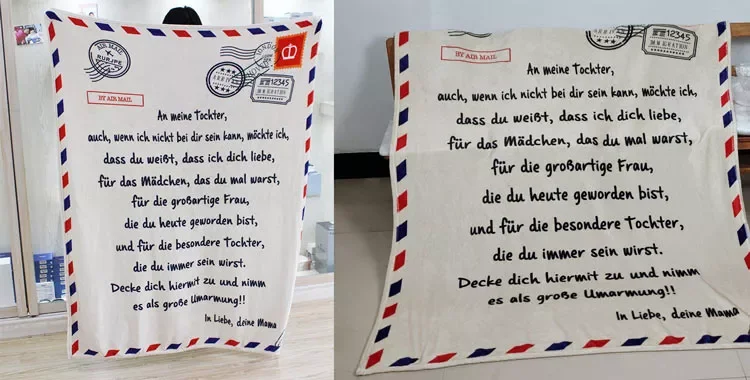 AIR MAIL
EUROPE
LONDON
ARRIVAL
12345
IMMIGRATION
BY AIR MAIL
An meine Tochter,
auch, wenn ich nicht bei dir sein kann, möchte ich,
dass du weißt, dass ich dich liebe,
für das Mädchen, das du mal warst,
für die großartige Frau,
die du heute geworden bist,
und für die besondere Tochter,
die du immer sein wirst.
Decke dich hiermit zu und nimm
es als große Umarmung!!
In Liebe, deine Mama
12345
IMMIGRATION
BY AIR MAIL
An meine Tochter,
auch, wenn ich nicht bei dir sein kann, möchte ich,
dass du weißt, dass ich dich liebe,
für das Mädchen, das du mal warst,
für die großartige Frau,
die du heute geworden bist,
und für die besondere Tochter,
die du immer sein wirst.
Decke dich hiermit zu und nimm
es als große Umarmung!!
In Liebe, deine Mama